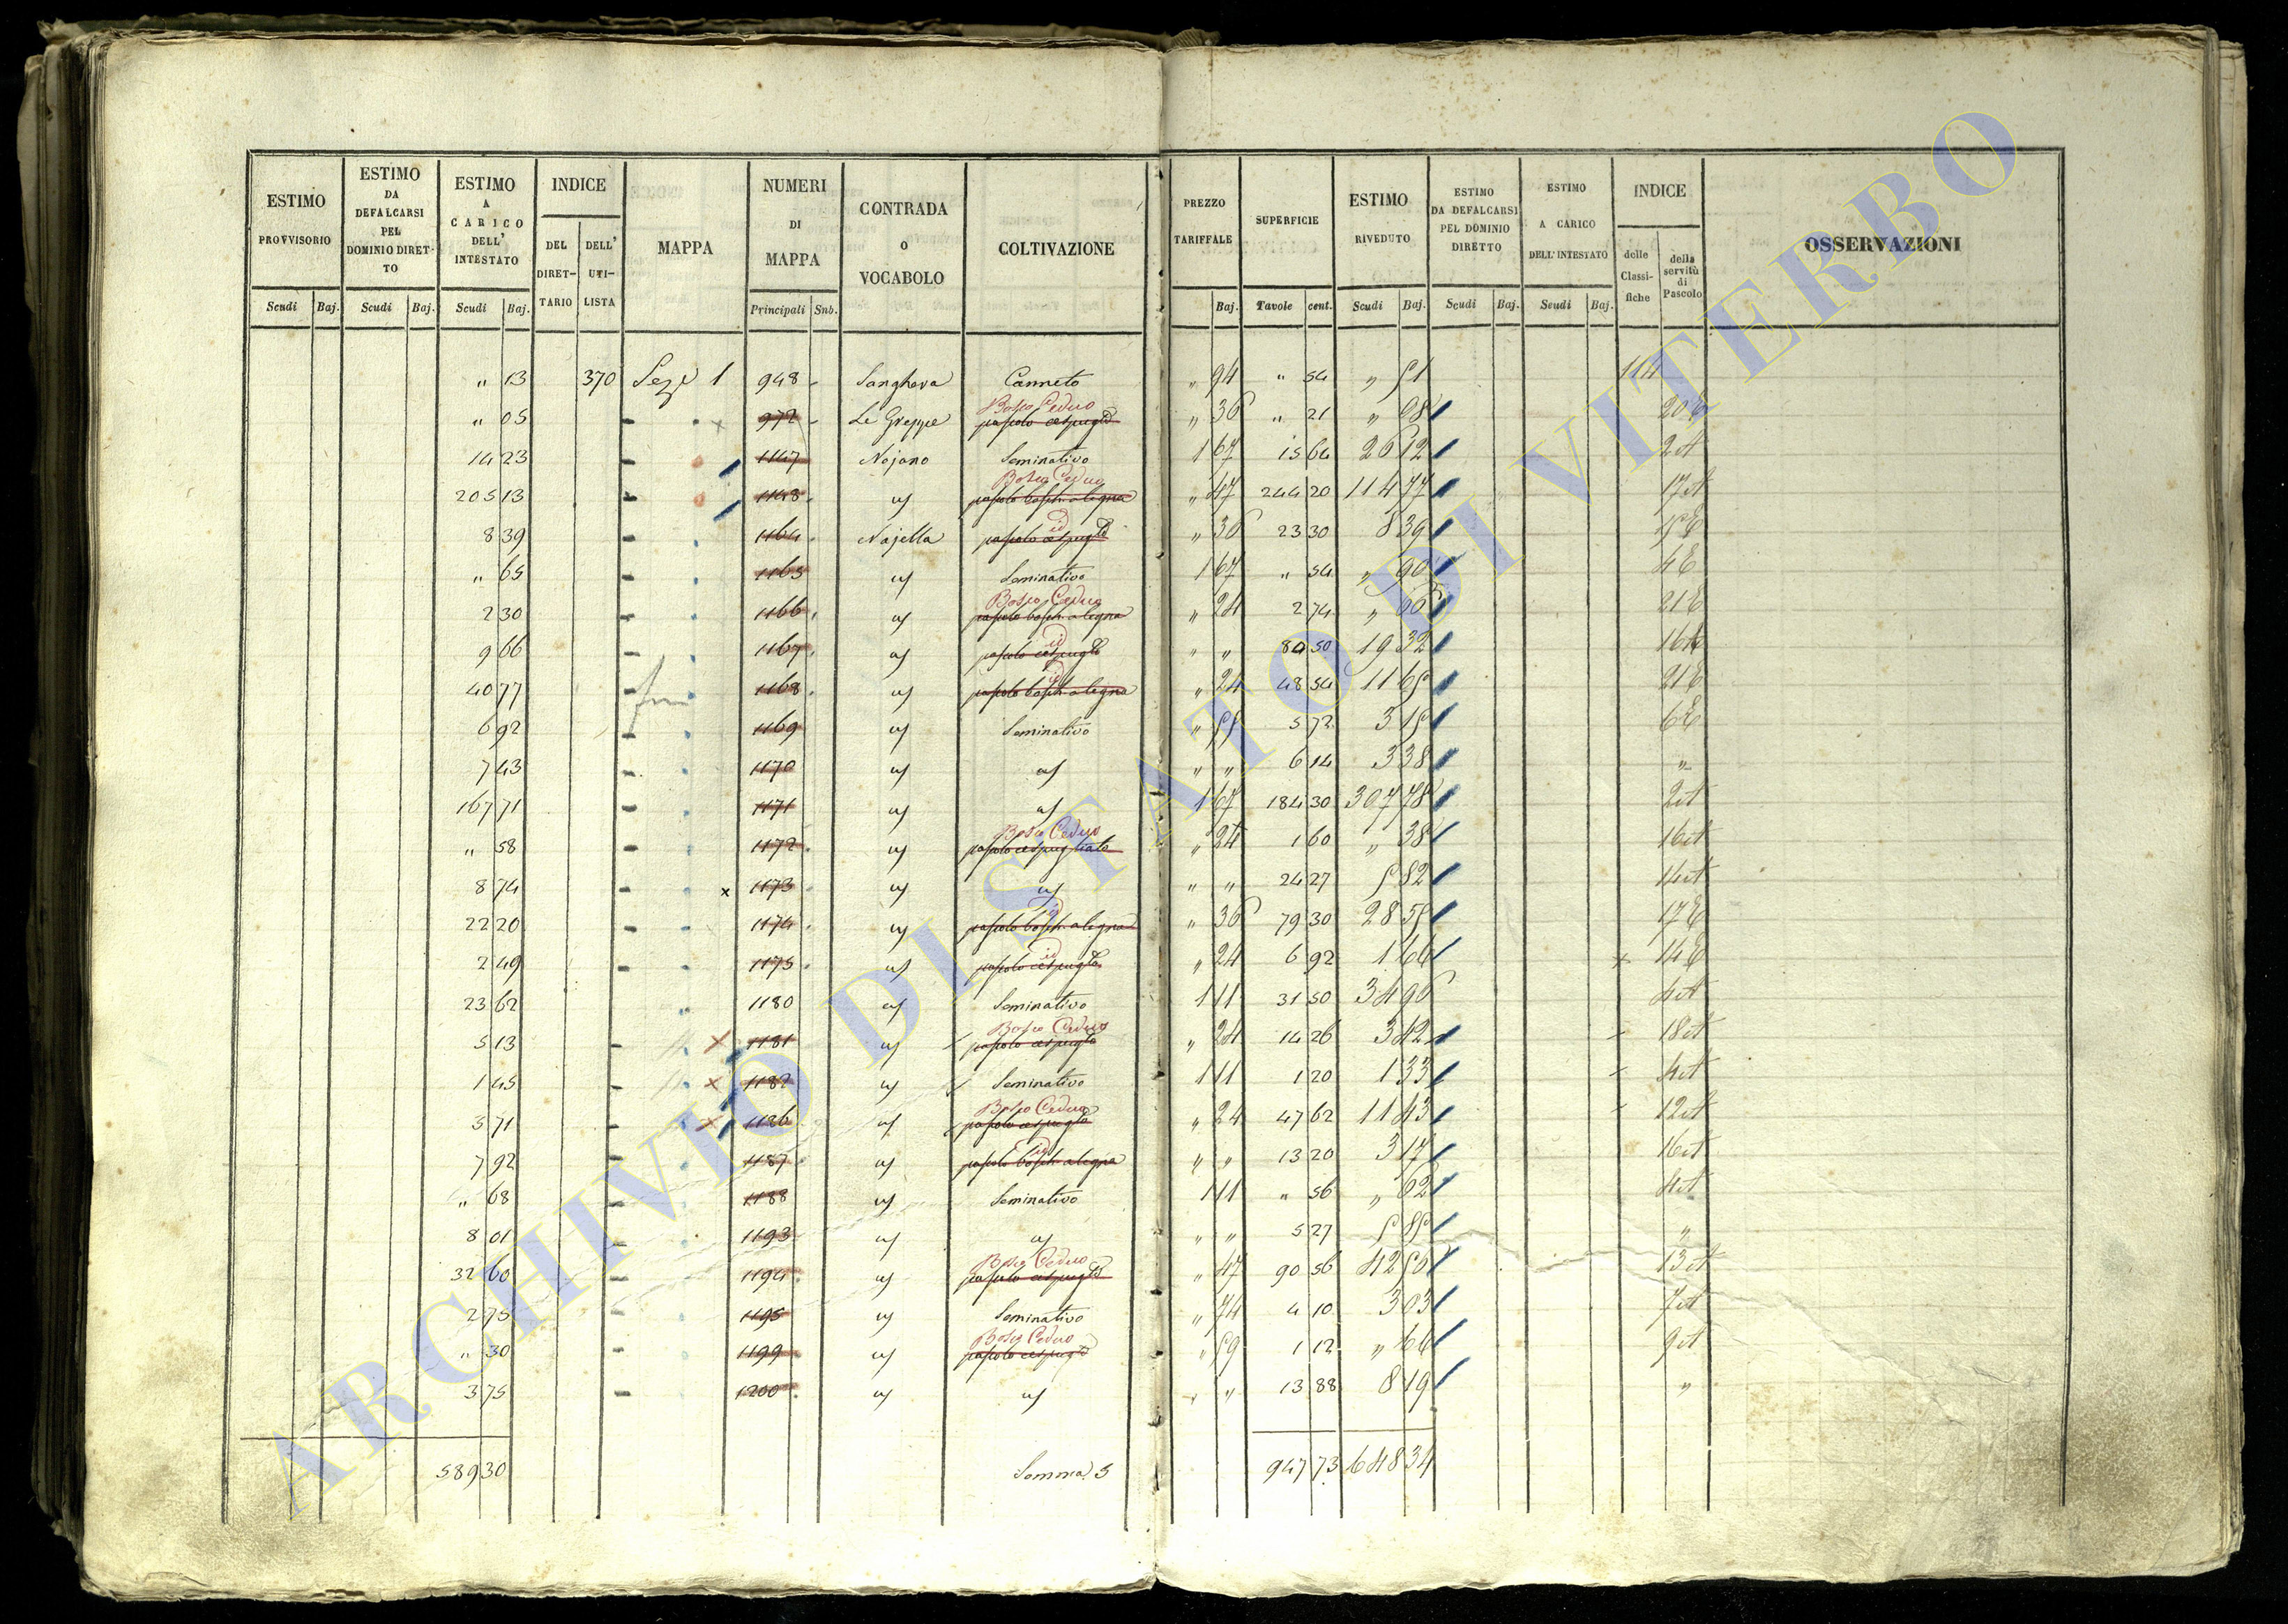 ESTIMO PROVVISORIO | ESTIMO DA DEFALCARSI PEL DOMINIO DIRET-TO | ESTIMO A CARICO DELL' INTESTATO | INDICE | MAPPA | NUMERI DI MAPPA | CONTRADA O VOCABOLO | COLTIVAZIONE | PREZZO TARIFFALE | SUPERFICIE | ESTIMO RIVEDUTO | ESTIMO DA DEFALCARSI PEL DOMINIO DIRETTO | ESTIMO A CARICO DELL' INTESTATO | INDICE | OSSERVAZIONI
DEL DIRET-TARIO | DELL' UTI-LISTA | delle Classi-fiche | della servitù di Pascolo
Scudi | Baj. | Scudi | Baj. | Scudi | Baj. | Principali | Sub. | Baj. | Tavole | cent. | Scudi | Baj. | Scudi | Baj. | Scudi | Baj.
" 13 | 370 | 1 | 948 | Canneto | " 94 | " 54 | " 51
" 05 | 972 | Le Greppe | Bosco Ceduo | pascolo cespugto | " 36 | " 21 | " 08 | 20 E
14 23 | 1147 | Nojano | Seminativo | 1 67 | 15 64 | 26 12 | 2 A
205 13 | 1148 | Bosco Ceduo | pascolo bosch. a legna | " 47 | 244 20 | 114 77 | 17 A
8 39 | 1164 | Nojella | id | pascolo cespugto | " 36 | 23 30 | 8 39 | 15 E
" 65 | 1165 | Seminativo | 1 67 | " 54 | " 90 | 4 E
2 30 | 1166 | Bosco Ceduo | pascolo bosch. a legna | " 24 | 2 74 | " 66 | 21 E
9 66 | 1167 | id | pascolo cespugto | " " | 80 50 | 19 32
40 77 | 1168 | id | pascolo bosch. a legna | " 24 | 48 54 | 11 65 | 21 E
6 92 | 1169 | Seminativo | " 55 | 5 72 | 3 15 | 6 E
7 43 | 1170 | " " | 6 14 | 3 38 | "
167 71 | 1171 | 1 67 | 184 30 | 307 78 | 2 A
" 58 | 1172 | Bosco Ceduo | pascolo cespugliato | " 24 | 1 60 | " 38 | 16 A
8 74 | x | 1173 | " " | 24 27 | 5 82 | 14 A
22 20 | 1174 | id | pascolo bosch. a legna | " 36 | 79 30 | 28 55 | 17 E
2 49 | 1175 | id | pascolo cespugto | " 24 | 6 92 | 1 66 | x | 14 E
23 62 | 1180 | Seminativo | 1 11 | 31 50 | 34 96 | 4 A
5 13 | x | 1181 | Bosco Ceduo | pascolo cespugto | " 24 | 14 26 | 3 42 | 18 A
1 45 | x | 1182 | Seminativo | 1 11 | 1 20 | 1 33 | 4 A
5 71 | x | 1186 | Bosco Ceduo | pascolo cespugto | " 24 | 47 62 | 11 43 | 12 A
7 92 | 1187 | id | pascolo bosch. a legna | " " | 13 20 | 3 17 | 16 A
" 68 | 1188 | Seminativo | 1 11 | " 56 | " 62 | 4 A
8 01 | 1193 | " " | 5 27 | 5 85 | "
32 60 | 1194 | Bosco Ceduo | pascolo cespugto | " 47 | 90 56 | 42 56 | 13 A
2 75 | 1195 | Seminativo | " 74 | 4 10 | 3 03 | 7 A
" 30 | 1199 | Bosco Ceduo | pascolo cespugto | " 59 | 1 12 | " 66 | 9 A
3 75 | 1200 | " " | 13 88 | 8 19 | "
589 30 | Somma | 947 73 | 648 34
ARCHIVIO DI STATO DI VITERBO